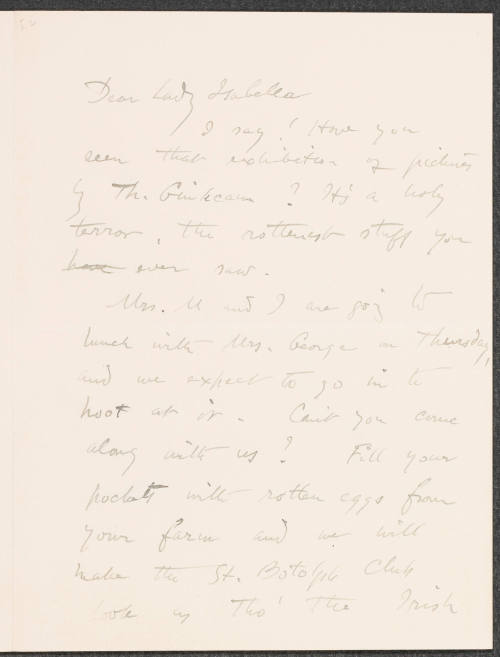 Dear Lady Isabella
I say! Have you
seen that exhibition of pictures
by Th. ? It's a holy
terror, the rottenest stuff you
have ever saw.
Mrs. M and I are going to
lunch with Mrs. George on Thursday,
and we expect to go in to
hoot at it. Can't you come
along with us? Fill your
pockets with rotten eggs from
your farm and we will
make the St. Botolph Club
look as tho' the Irish